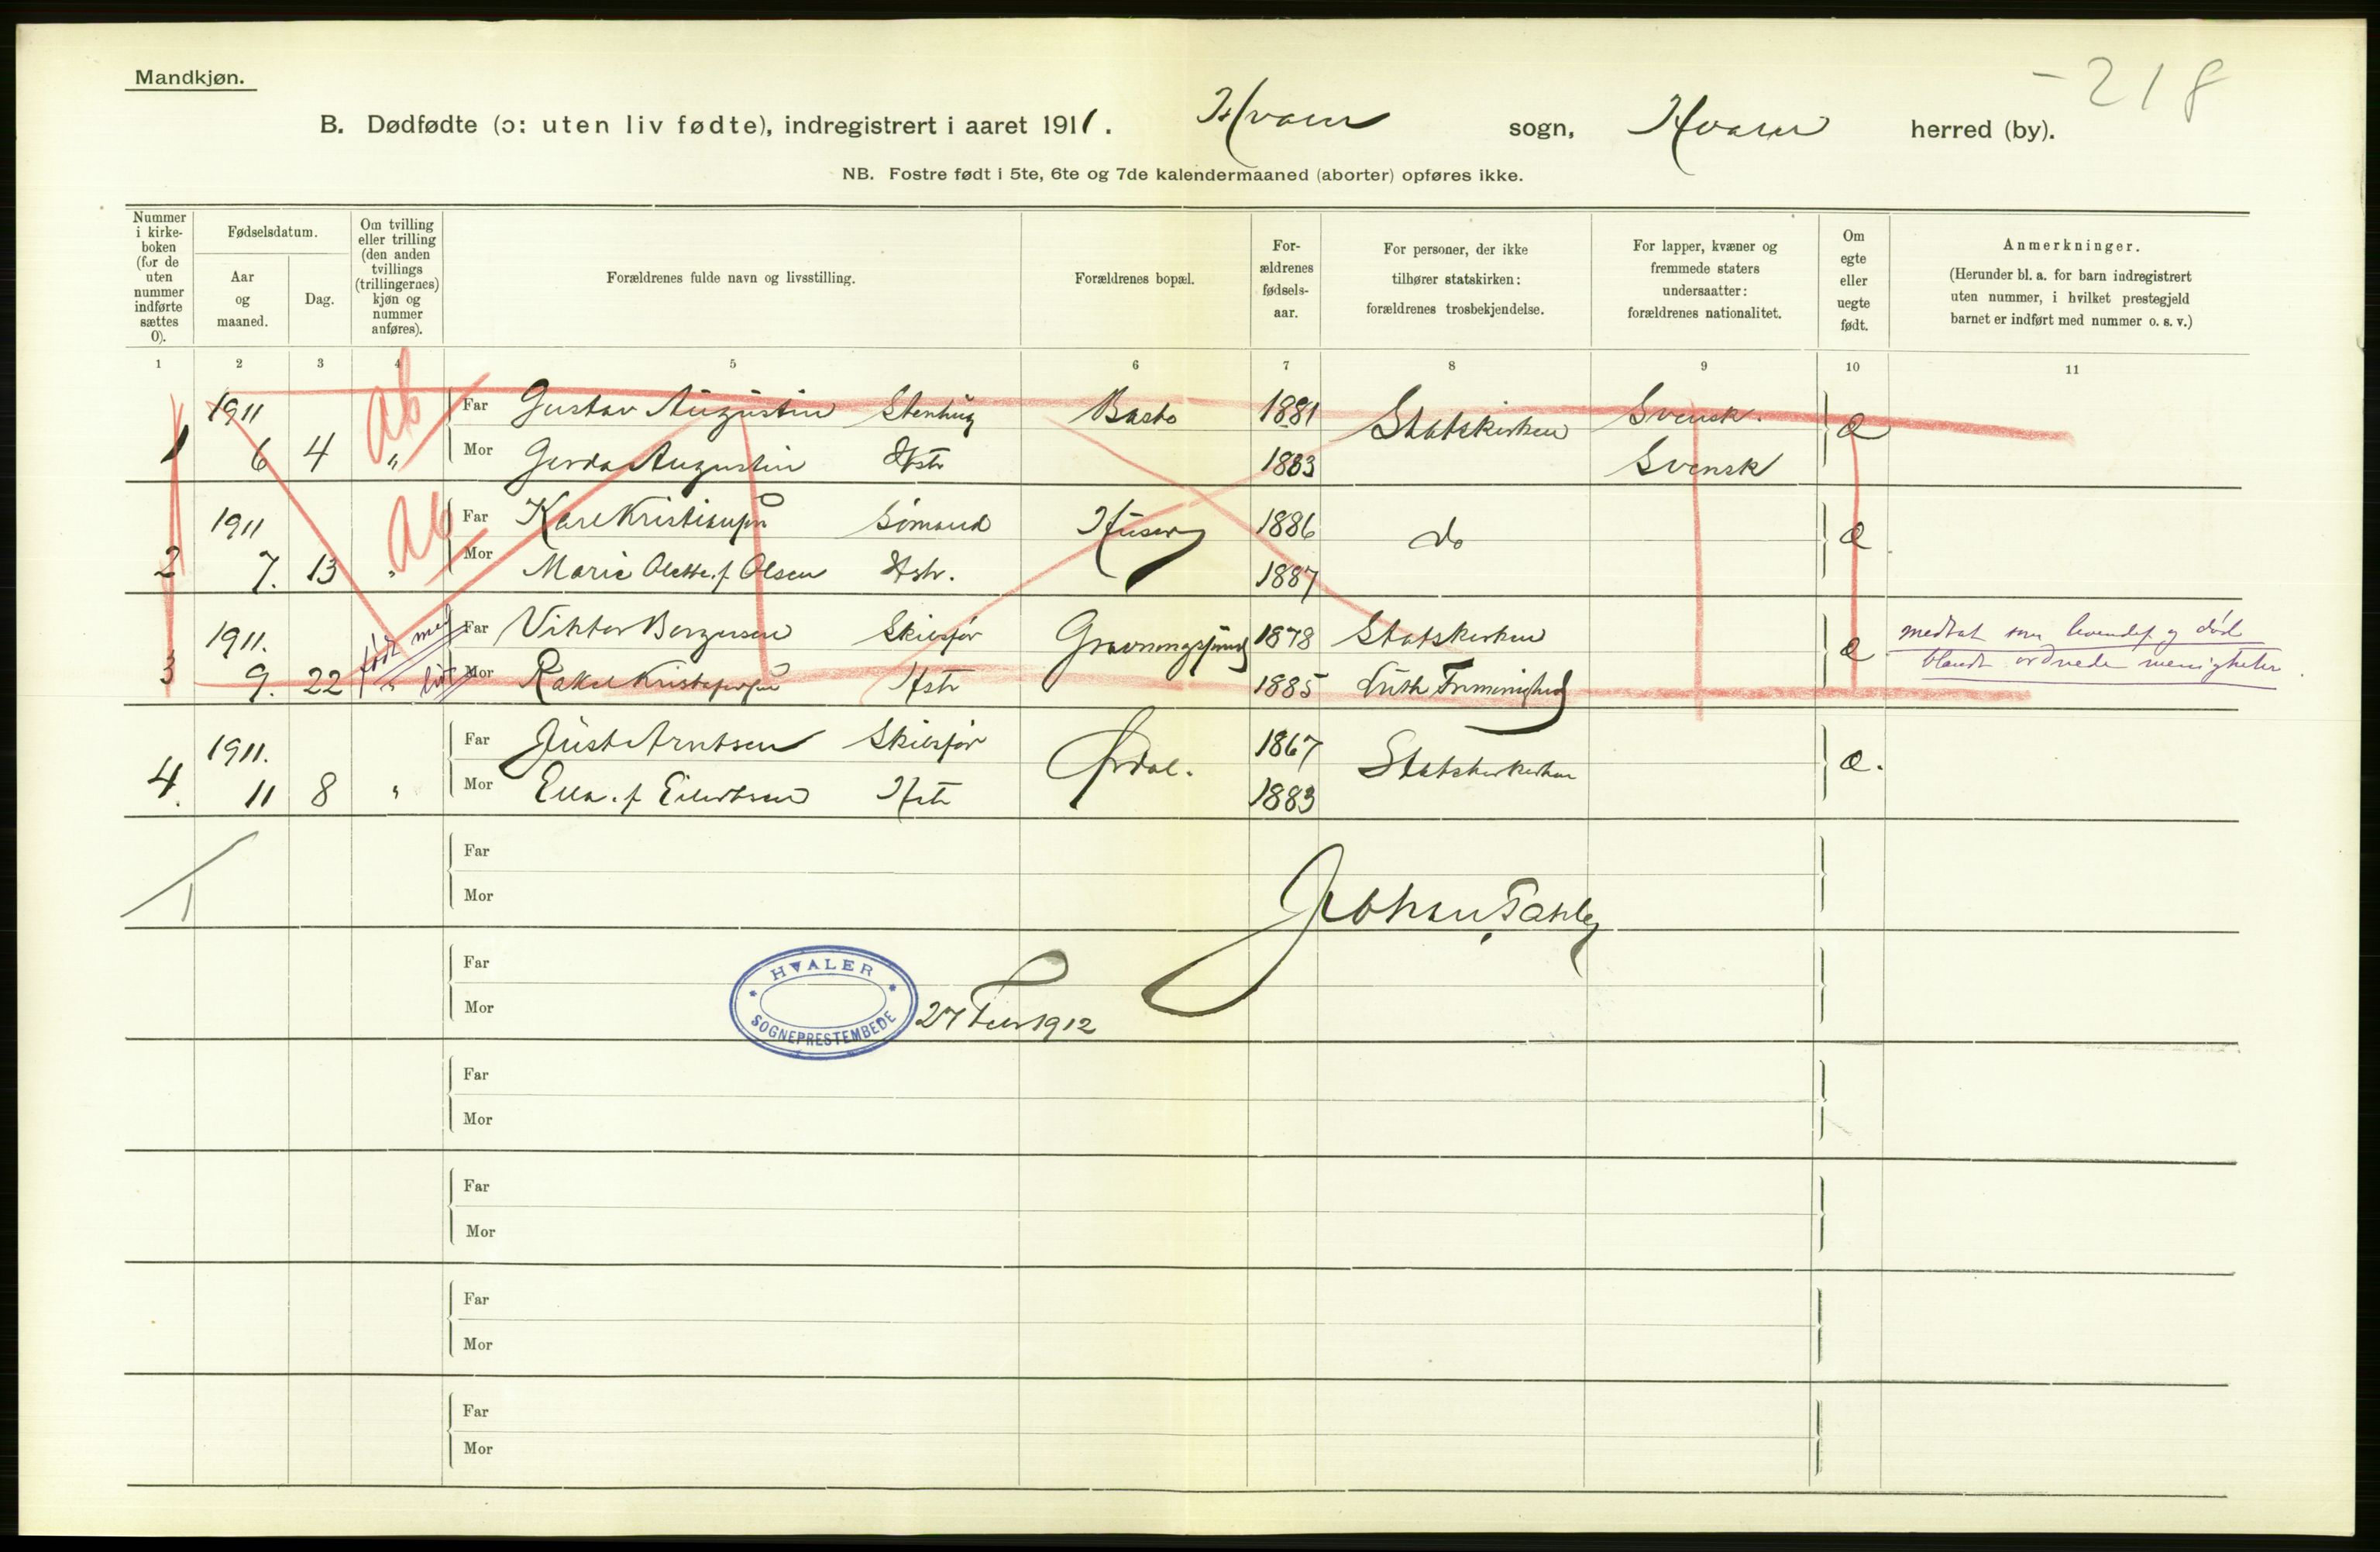 Mandkjøn.
-218
B. Dødfødte (ɔ: uten liv fødte), indregistrert i aaret 1911. Hvaler sogn, Hvaler herred (by).
NB. Fostre født i 5te, 6te og 7de kalendermaaned (aborter) opføres ikke.
Nummer i kirke-boken (for de uten nummer indførte sættes 0).
Fødselsdatum.
Aar og maaned.
Dag.
Om tvilling eller trilling (den anden tvillings (trillingernes) kjøn og nummer anføres).
Forældrenes fulde navn og livsstilling.
Forældrenes bopæl.
For-ældrenes fødsels-aar.
For personer, der ikke tilhører statskirken: forældrenes trosbekjendelse.
For lapper, kvæner og fremmede staters undersaatter: forældrenes nationalitet.
Om egte eller uegte født.
Anmerkninger.
(Herunder bl. a. for barn indregistrert uten nummer, i hvilket prestegjeld barnet er indført med nummer o. s. v.)
1 2 3 4 5 6 7 8 9 10 11
1911 ab Far Gustav Augustin Stenhug Basto 1881 Statskirken Svensk. æ
1 6 4 " Mor Gerda Augustin Hstr 1883 Svensk
1911 ab Far Karl Kristiansen Sømand Huser 1886 do æ
2 7. 13 " Mor Marie Olette f. Olsen Hstr. 1887
1911. født med liv Far Viktor Borgersen Skibsfør 1878 Statskirken æ medtat som levendef. og død
3 9. 22 " Mor Rakel Kristofersen Hstr 1885 Luth Frimenighed blandt ordnede menigheter.
1911. Far Just Arntsen Skibsfør Ørdal. 1867 Statskirken æ.
4. 11 8 " Mor Ella f. Eilertsen Hstr 1883
Far
Mor
Johan
Far
Mor
HVALER SOGNEPRESTEMBEDE
27 Febr 1912
Far
Mor
Far
Mor
Far
Mor
Far
Mor